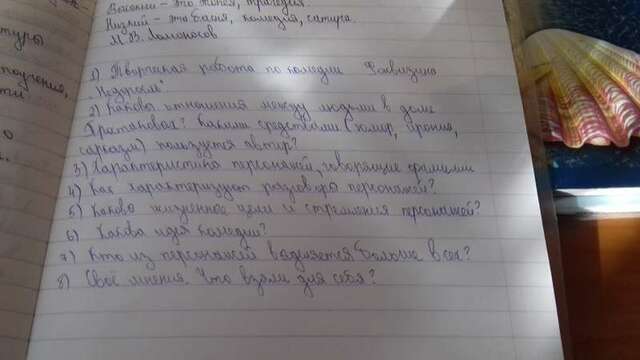 Высокий – это поэма, трагедия.
Низкий – это басня, комедия, сатира.
М. В. Ломоносов
туры
поучения,
сти
о
1) Творческая работа по комедии Фонвизина
Недросль"
2) Какова отношения между людьми в доме
Простаковой? Какими средствами (юмор, ирония,
сарказм) пользуется автор?
3) Характеристика персонажей, говорящие фамилии
4) Как характеризуют разговоры персонажей?
5) Каково жизненное цели и стремления персонажей?
6) Какова идея комедии?
7) Кто из персонажей выделяется больше всех?
8) Своё мнения. Что взяли для себя?